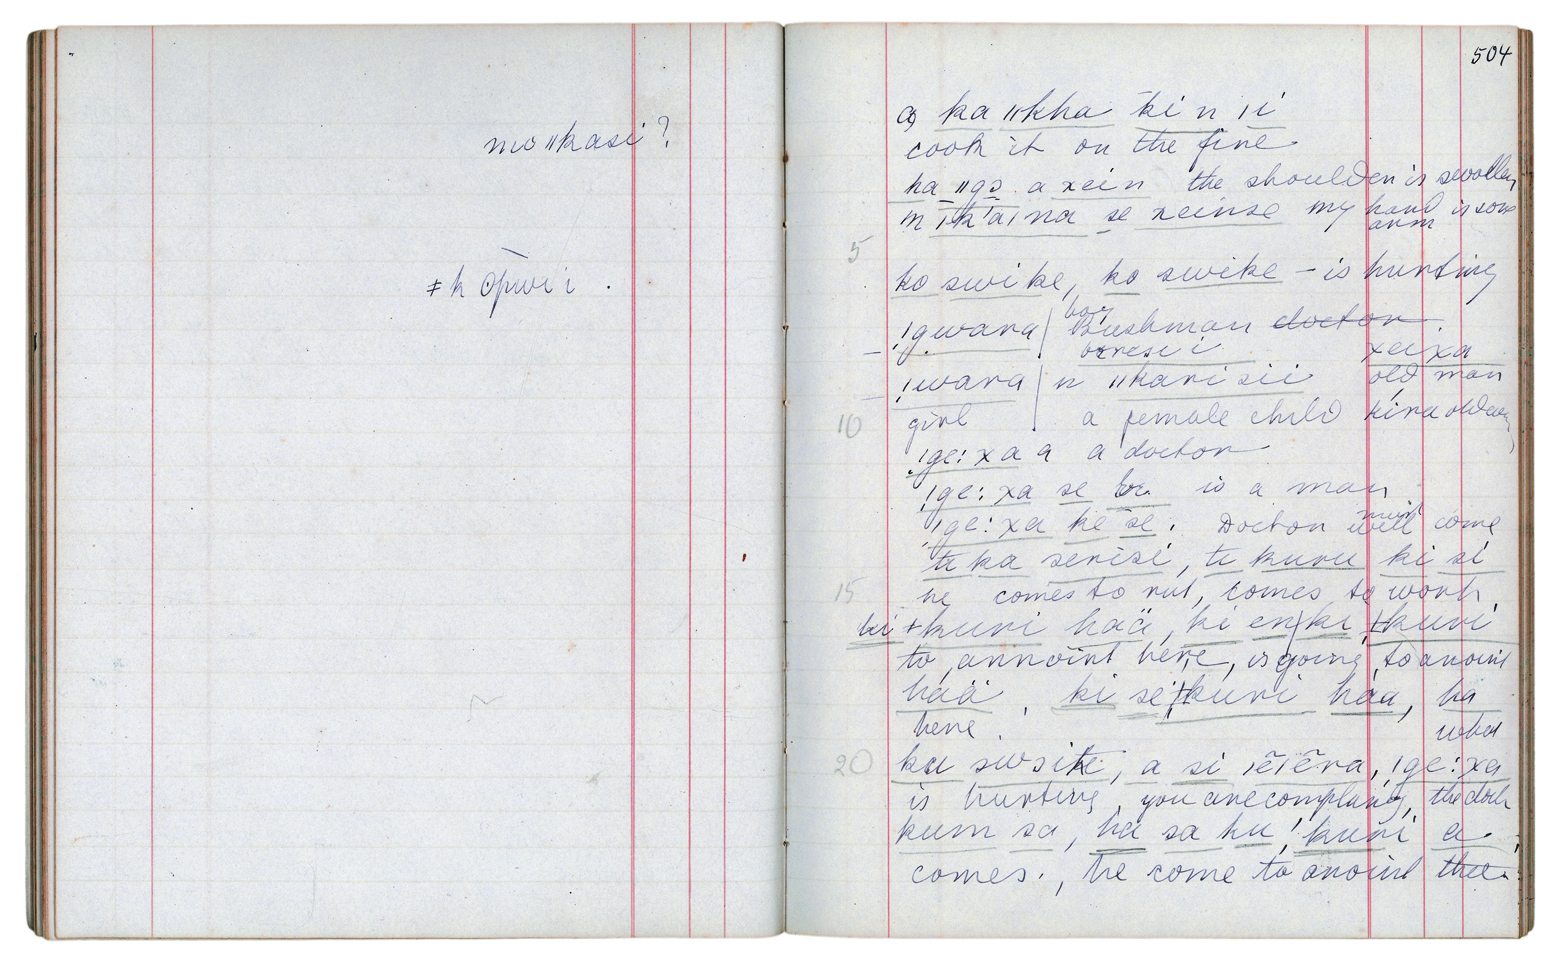 mo ǁkasi ?
ǂk ōpwi i .
504
a ka ǁkha ki n ǀi
cook it on the fire
ha ǁgɔ a xein the shoulder is swollen
m ǀk'aǀna se xeinse my hand is sore
arm
5
ko swike, ko swike – is hurting
boy
!gwara Bushman doctor
– boresi i xeixa
!wara n ǁkari sii old man
10
girl a female child
!ge: xa a a doctor
!ge: xa se is a man
must
!ge: xa ke se . Doctor will come
te ka serisi, te kuru ki si
15
he comes to rut, comes to work
ki ǂkuri hää, ki en ki ǂkuri
to annoint here, is going to anoint
hää , ki se ǂkuri háa, ha
here . what
20
ka swsike, a si ǀẽǀẽra, !ge: xa
is hurting, you are complaing, the doct
kum sa, ha sa ku !kuri a .
comes . , he come to anoint thee .